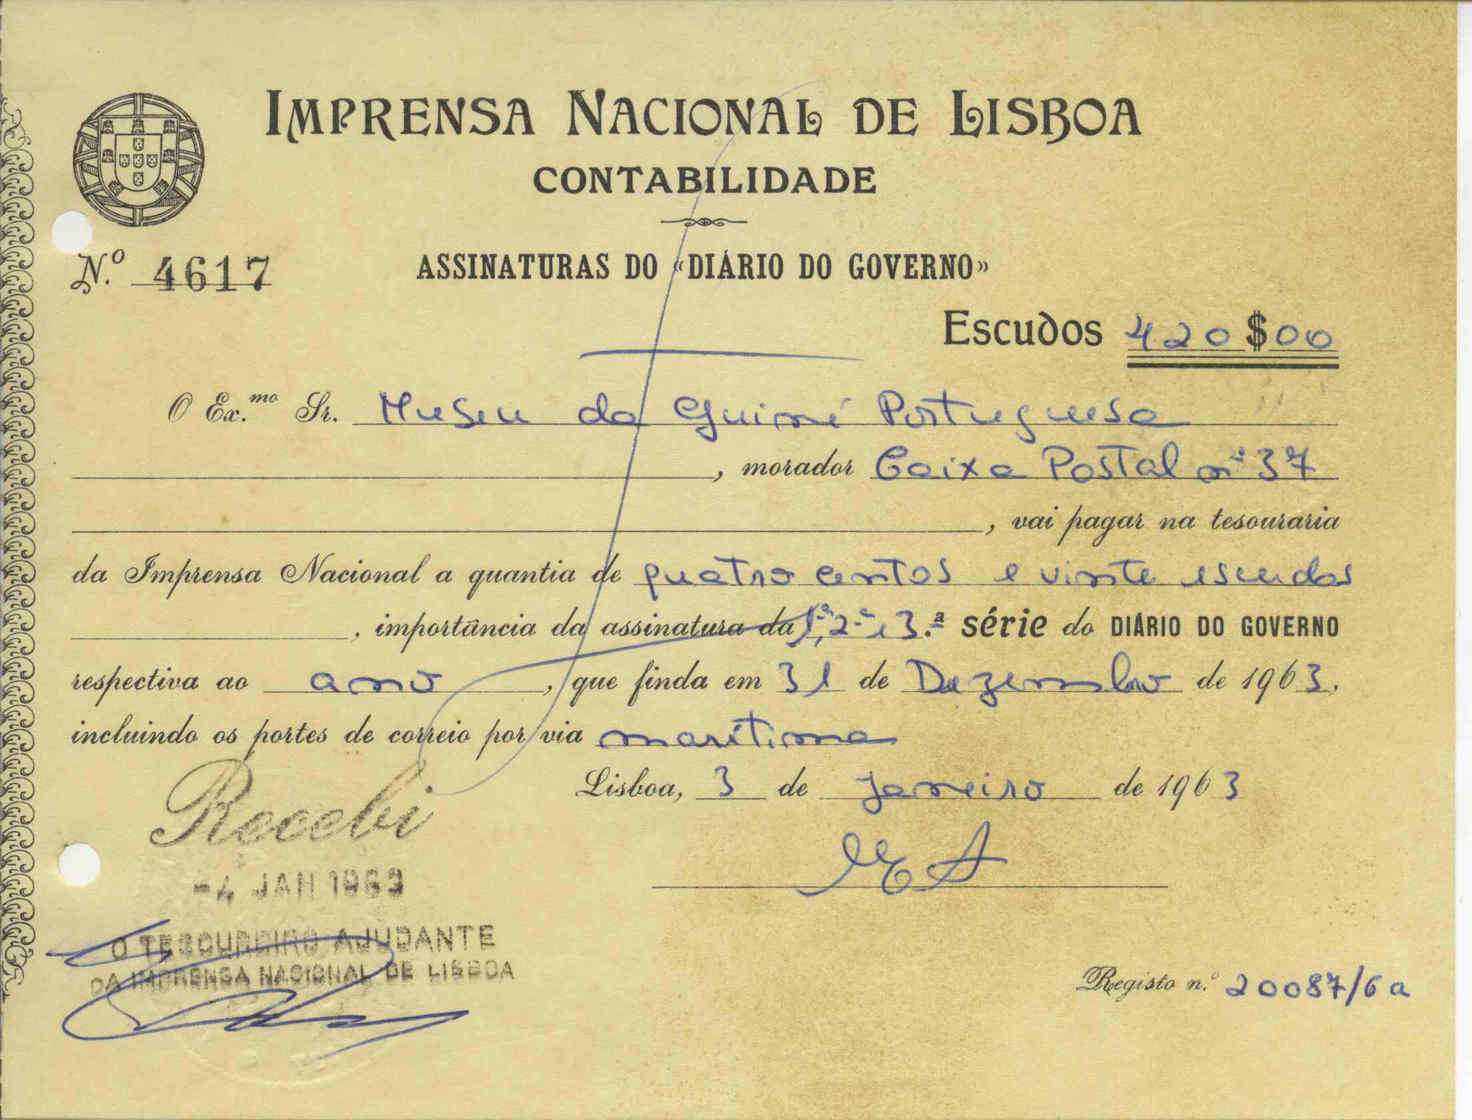 IMPRENSA NACIONAL DE LISBOA
CONTABILIDADE
N.º 4617
ASSINATURAS DO «DIÁRIO DO GOVERNO»
Escudos 420$00
O Ex.mo Sr. Museu da Guiné Portuguesa
, morador Caixa Postal nº 37
, vai pagar na tesouraria
da Imprensa Nacional a quantia de quatrocentos e vinte escudos
, importância da assinatura da 1ª, 2ª e 3.ª série do DIÁRIO DO GOVERNO
respectiva ao ano, que finda em 31 de Dezembro de 1963,
incluindo os portes de correio por via marítima
Lisboa, 3 de Janeiro de 1963
Recebi
-4 JAN 1963
O TESOUREIRO AJUDANTE
DA IMPRENSA NACIONAL DE LISBOA
Registo n.º 20087/6a